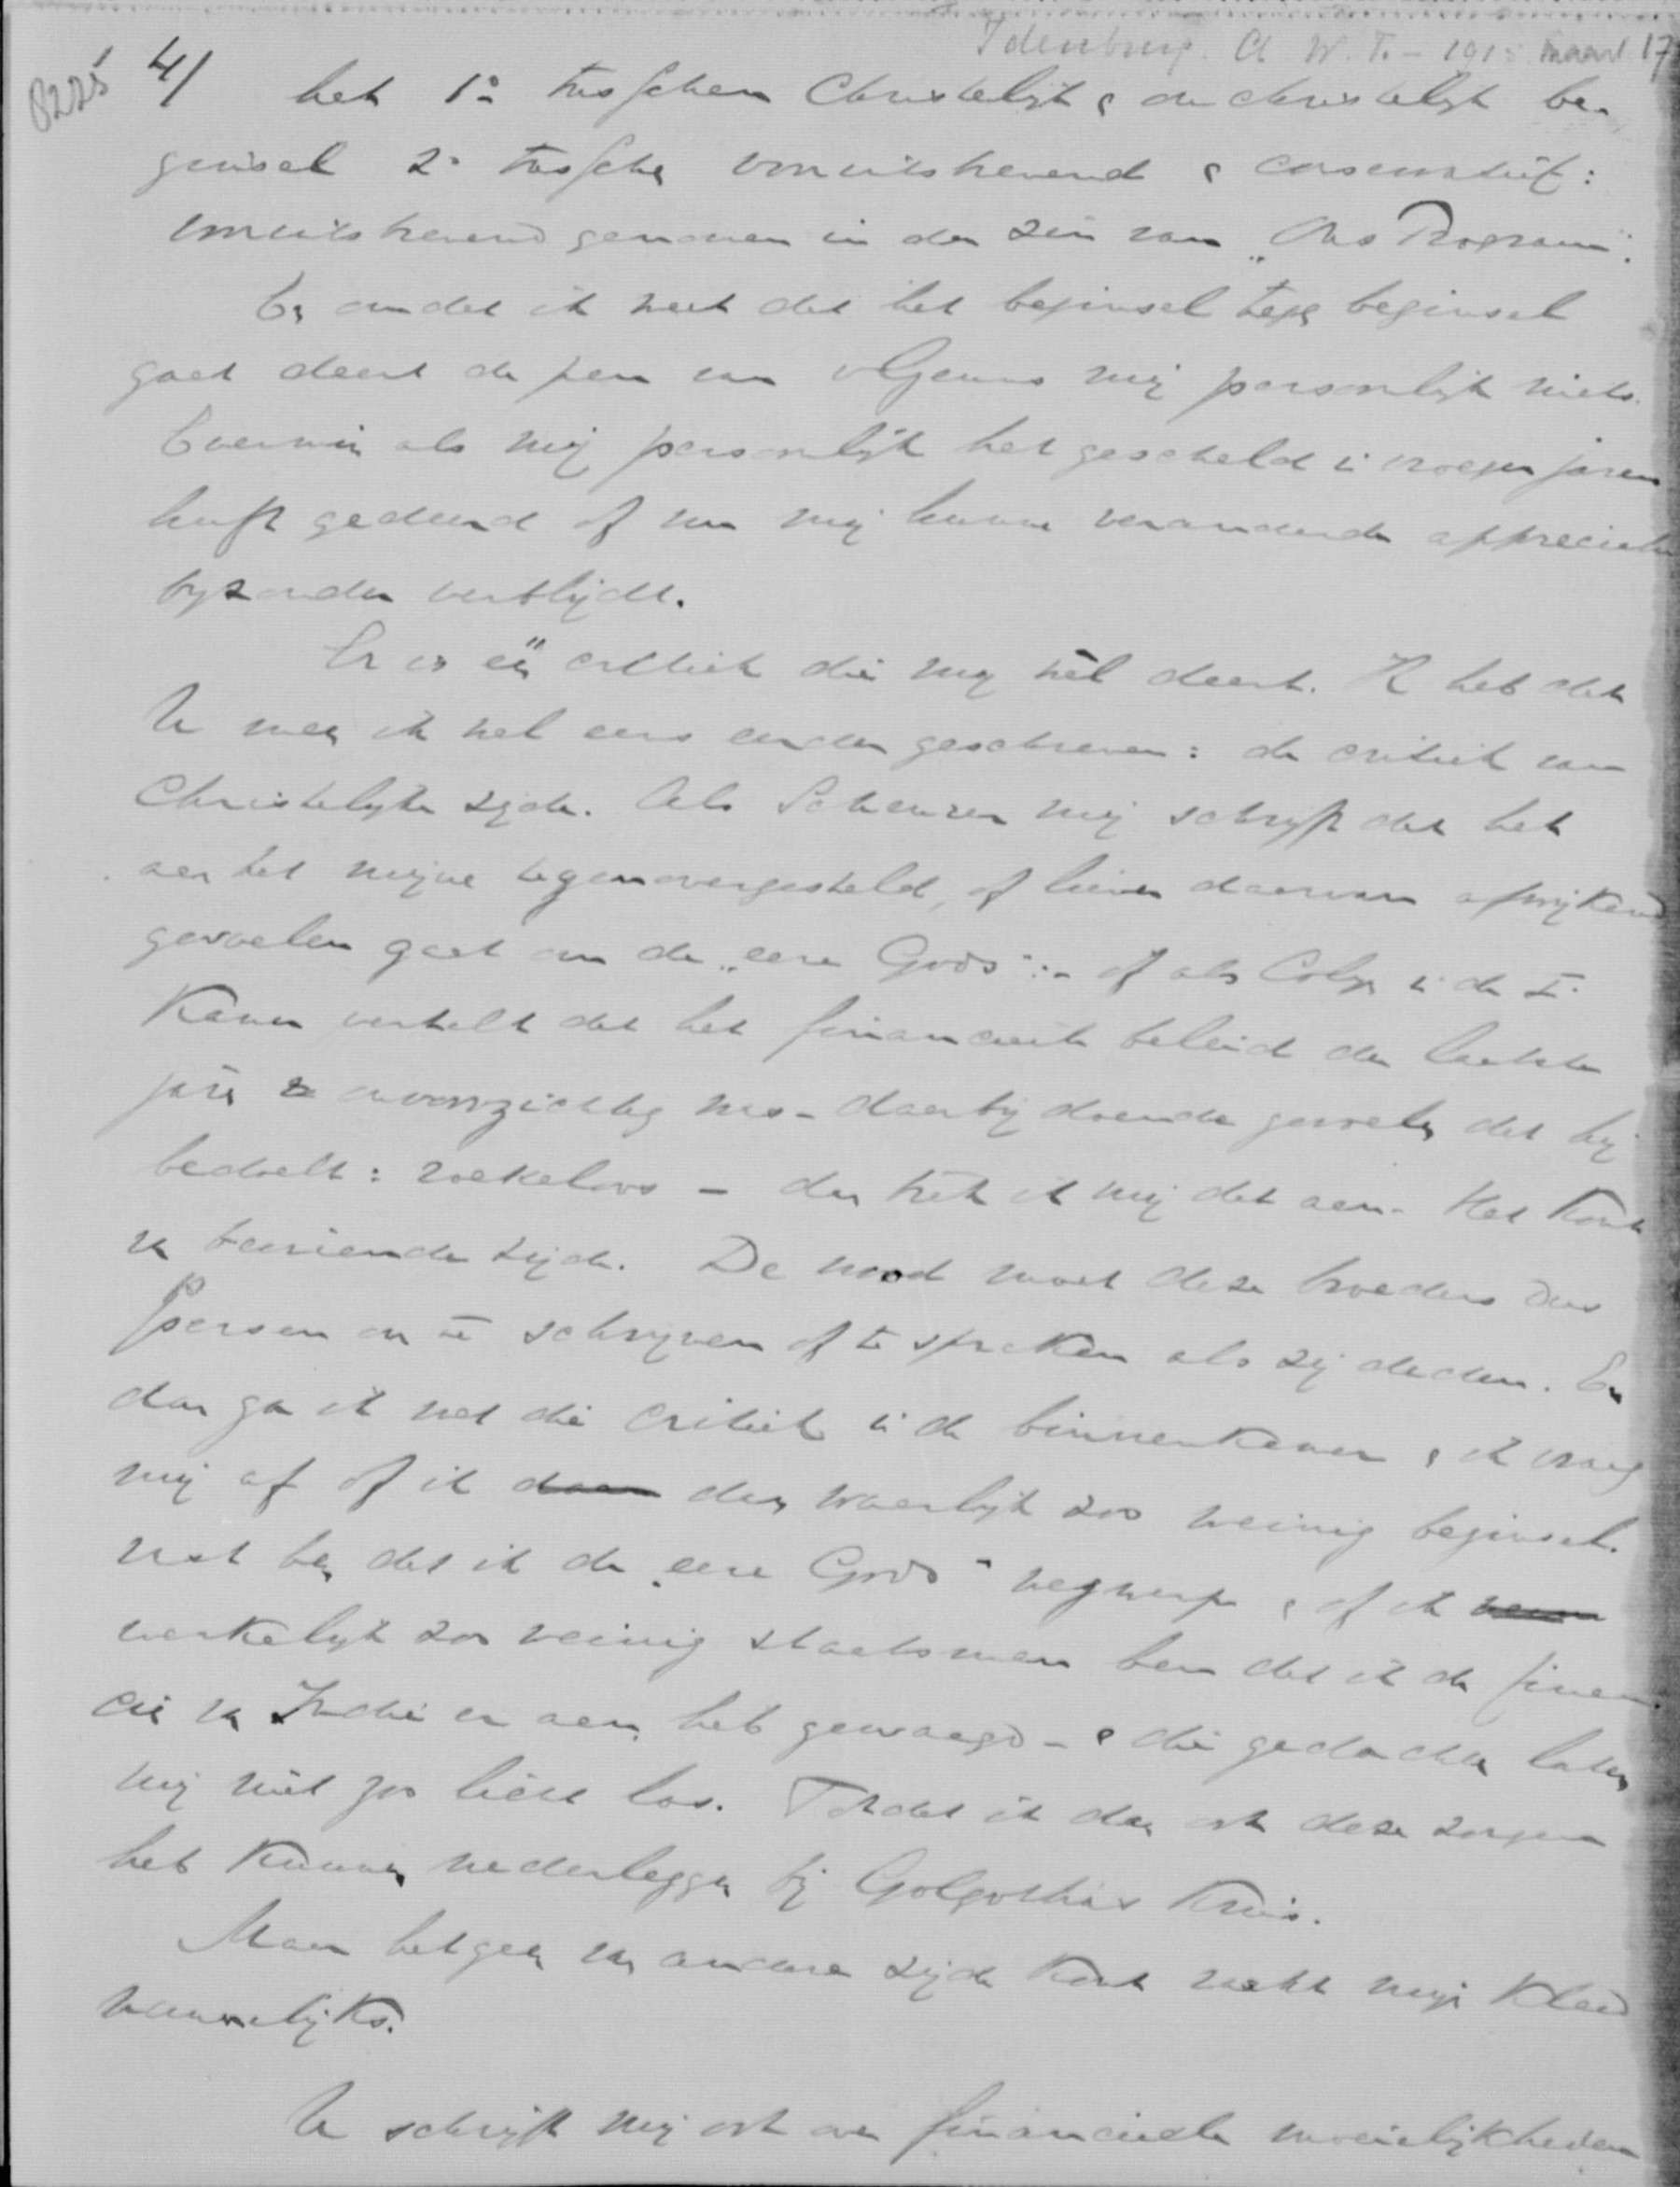 Idenburg. A. W. F. - 1915 maart 17
8225
4/ het 1º tusschen Christelijk & on christelijk be-
ginsel 2º tusschen vooruitstrevend & conservatief:
vooruitstrevend genomen in den zin van "Ons Program".
En omdat ik weet dat het beginsel tegen beginsel
gaat deert de pen van mij persoonlijk niets.
Evenmin als mij persoonlijk het gescheld in vroeger jaren
heeft gedeerd of nu mij hunne veranderde appreciatie
bijzonder verblijdt.
Er is één critiek die mij wèl deert. Ik heb dat
U meen ik wel eens eerder geschreven: de critiek van
Christelijke zijde. Als Scheurer mij schrijft dat het
aan het mijne tegenovergesteld, of liever daarvan afwijkend
gevoelen gaat om de "eere Gods" :- of als Colijn in de IIe
Kamer vertelt dat het financieele beleid der laatste
jaren onvoorzichtig was - daarbij doende gevoelen dat hij
bedoelt: roekeloos - dan trek ik mij dat aan. Het komt
van bevriende zijde. De nood moet deze broeders dus
persen om te schrijven of te spreken als zij deden. En
dan ga ik met die critiek in de binnenkamer & ik vraag
mij af of ik dan waarlijk zoo weinig beginsel-
vast ben dat ik de "eere Gods" wegwerp & of ik
werkelijk zoo weinig staatsman ben dat ik de finan-
ciën van Indië er aan heb gewaagd - & die gedachten laten
mij niet zoo licht los. Totdat ik dan ook deze zorgen
heb kunnen nederleggen bij Golgotha's Kruis.
Maar hetgeen van andere zijde komt raakt mijn kleed
nauwelijks.
U schrijft mij ook over financieele moeielijkheden